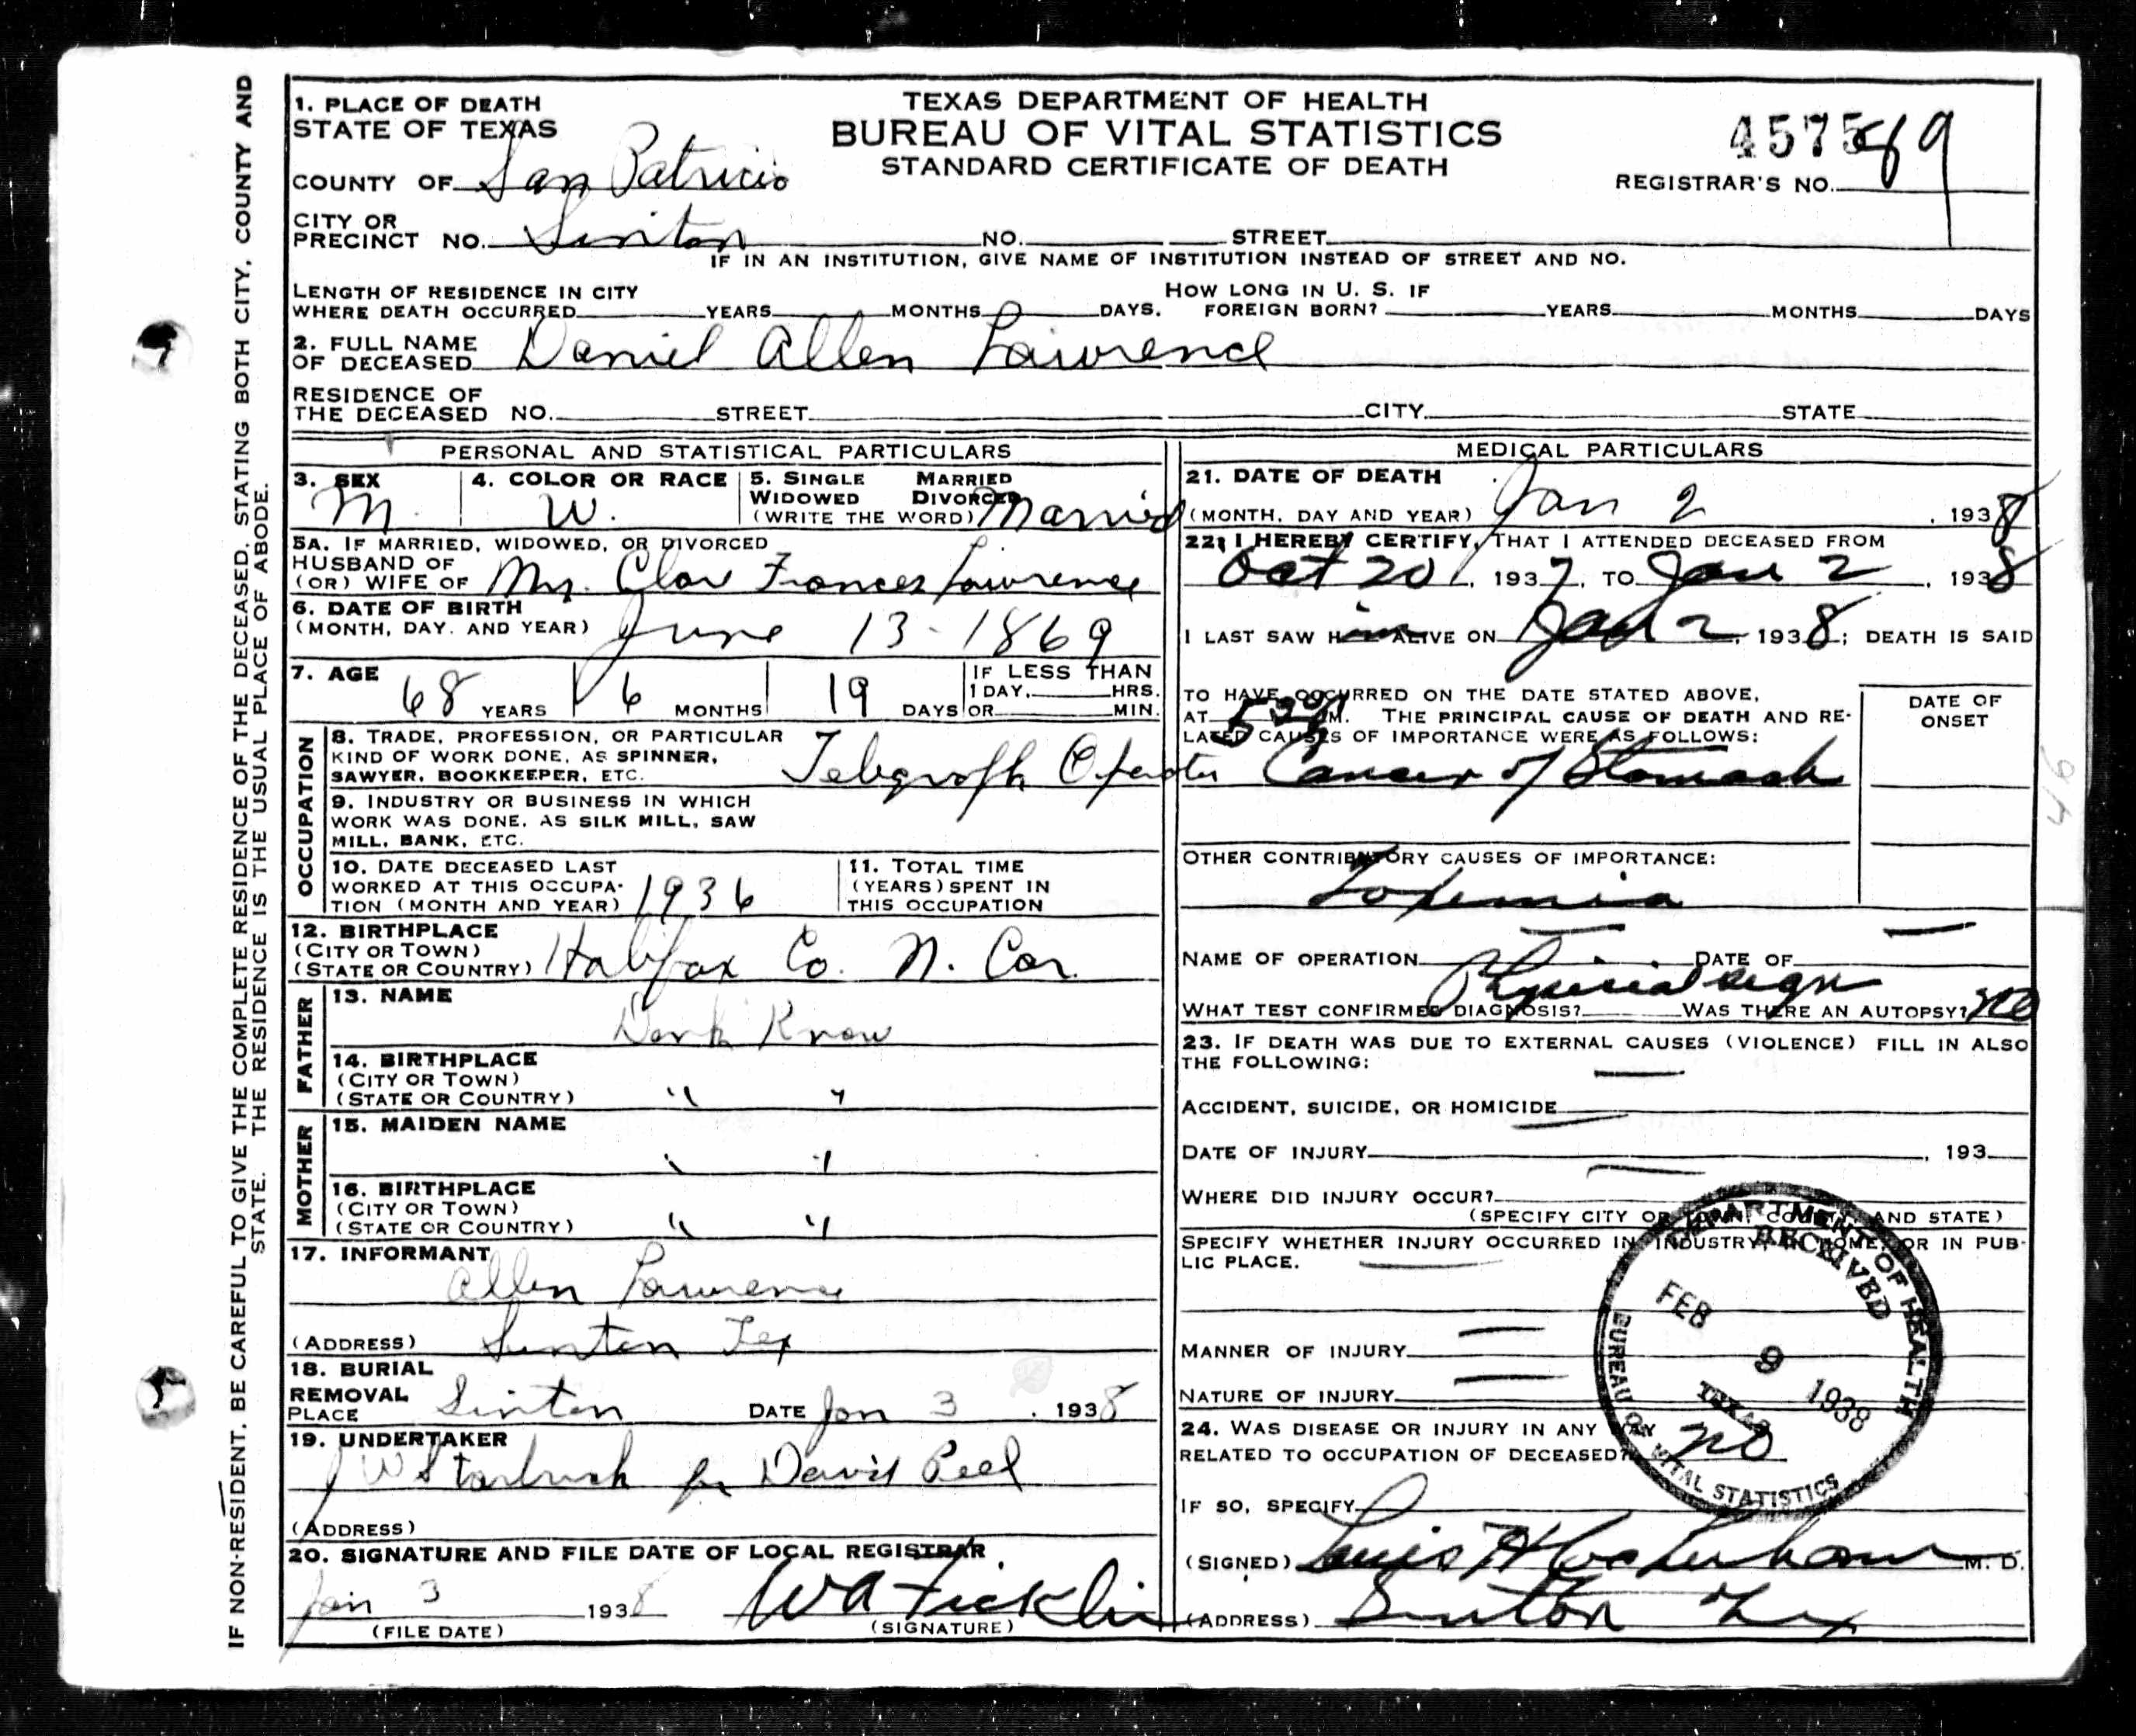 IF NON-RESIDENT, BE CAREFUL TO GIVE THE COMPLETE RESIDENCE OF THE DECEASED, STATING BOTH CITY, COUNTY AND
STATE. THE RESIDENCE IS THE USUAL PLACE OF ABODE.
TEXAS DEPARTMENT OF HEALTH
BUREAU OF VITAL STATISTICS
STANDARD CERTIFICATE OF DEATH
4575
REGISTRAR'S NO. 89
1. PLACE OF DEATH
STATE OF TEXAS
COUNTY OF San Patricio
CITY OR
PRECINCT NO. Sinton NO. STREET
IF IN AN INSTITUTION, GIVE NAME OF INSTITUTION INSTEAD OF STREET AND NO.
LENGTH OF RESIDENCE IN CITY
WHERE DEATH OCCURRED YEARS MONTHS DAYS.
HOW LONG IN U. S. IF
FOREIGN BORN? YEARS MONTHS DAYS
2. FULL NAME
OF DECEASED Daniel Allen Lawrence
RESIDENCE OF
THE DECEASED NO. STREET CITY STATE
PERSONAL AND STATISTICAL PARTICULARS
3. SEX
M.
4. COLOR OR RACE
W.
5. SINGLE MARRIED
WIDOWED DIVORCED
(WRITE THE WORD) Married
5A. IF MARRIED, WIDOWED, OR DIVORCED
HUSBAND OF
(OR) WIFE OF Mrs. Frances Lawrence
6. DATE OF BIRTH
(MONTH, DAY. AND YEAR) June 13-1869
7. AGE
68 YEARS 6 MONTHS 19 DAYS
IF LESS THAN
1 DAY, HRS.
OR MIN.
OCCUPATION
8. TRADE, PROFESSION, OR PARTICULAR
KIND OF WORK DONE, AS SPINNER,
SAWYER, BOOKKEEPER, ETC. Telegraph Operator
9. INDUSTRY OR BUSINESS IN WHICH
WORK WAS DONE, AS SILK MILL, SAW
MILL, BANK, ETC.
10. DATE DECEASED LAST
WORKED AT THIS OCCUPA-
TION (MONTH AND YEAR) 1936
11. TOTAL TIME
(YEARS) SPENT IN
THIS OCCUPATION
12. BIRTHPLACE
(CITY OR TOWN)
(STATE OR COUNTRY) Halifax Co. N. Car.
FATHER
13. NAME
Dont Know
14. BIRTHPLACE
(CITY OR TOWN)
(STATE OR COUNTRY) " "
MOTHER
15. MAIDEN NAME
" "
16. BIRTHPLACE
(CITY OR TOWN)
(STATE OR COUNTRY) " "
17. INFORMANT
Allen Lawrence
(ADDRESS) Sinton Tex
18. BURIAL
REMOVAL
PLACE Sinton DATE Jan 3, 1938
19. UNDERTAKER
for David Peel
(ADDRESS)
20. SIGNATURE AND FILE DATE OF LOCAL REGISTRAR
Jan 3 1938 W A Ficklin
(FILE DATE) (SIGNATURE)
MEDICAL PARTICULARS
21. DATE OF DEATH
(MONTH, DAY AND YEAR) Jan 2, 1938
22. I HEREBY CERTIFY, THAT I ATTENDED DECEASED FROM
Oct 20, 1937, TO Jan 2, 1938
I LAST SAW Him ALIVE ON Jan 2, 1938; DEATH IS SAID
TO HAVE OCCURRED ON THE DATE STATED ABOVE,
AT M. THE PRINCIPAL CAUSE OF DEATH AND RE-
LATED CAUSES OF IMPORTANCE WERE AS FOLLOWS:
Cancer of Stomach
DATE OF
ONSET
OTHER CONTRIBUTORY CAUSES OF IMPORTANCE:
Toxemia
NAME OF OPERATION DATE OF
WHAT TEST CONFIRMED DIAGNOSIS? Physical sign WAS THERE AN AUTOPSY? No
23. IF DEATH WAS DUE TO EXTERNAL CAUSES (VIOLENCE) FILL IN ALSO
THE FOLLOWING:
ACCIDENT, SUICIDE, OR HOMICIDE
DATE OF INJURY , 193
WHERE DID INJURY OCCUR?
(SPECIFY CITY OR TOWN, COUNTY, AND STATE)
SPECIFY WHETHER INJURY OCCURRED IN INDUSTRY, IN HOME, OR IN PUB-
LIC PLACE.
MANNER OF INJURY
NATURE OF INJURY
24. WAS DISEASE OR INJURY IN ANY WAY
RELATED TO OCCUPATION OF DECEASED? No
IF SO, SPECIFY
(SIGNED) M. D.
(ADDRESS) Sinton Tex
DEPARTMENT OF HEALTH
RECEIVED
FEB 9 1938
TEXAS
BUREAU OF VITAL STATISTICS
46